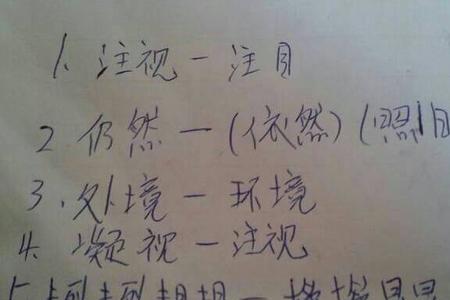 1. 注视一注目
2 仍然一(依然)(照旧
3. 处境一环境
4. 凝视一注视